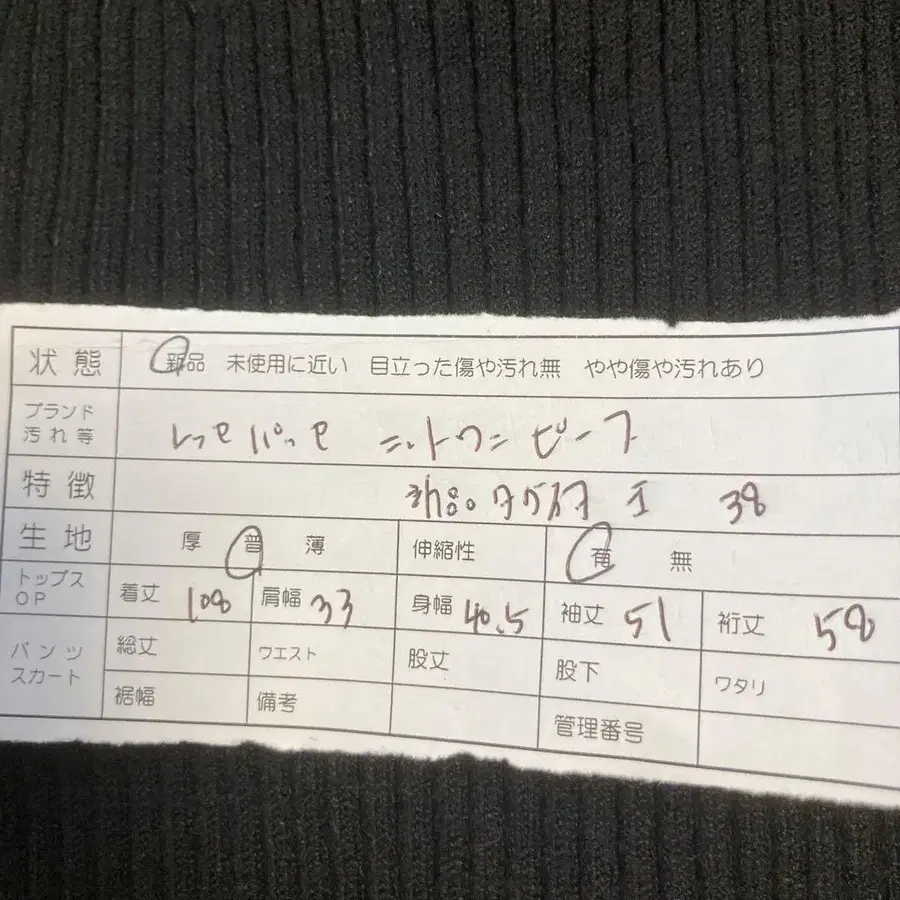 状態 新品 未使用に近い 目立った傷や汚れ無 ややや傷や汚れあり
ブランド
汚れ等 レッセパッセ ニットワンピース
特徴 新品タグ付 38
生地 厚 普 薄 伸縮性 有 無
トップス
OP 着丈 108 肩幅 33 身幅 40.5 袖丈 51 裄丈 58
パンツ
スカート 総丈 ウエスト 股丈 股下 ワタリ
裾幅 備考 管理番号